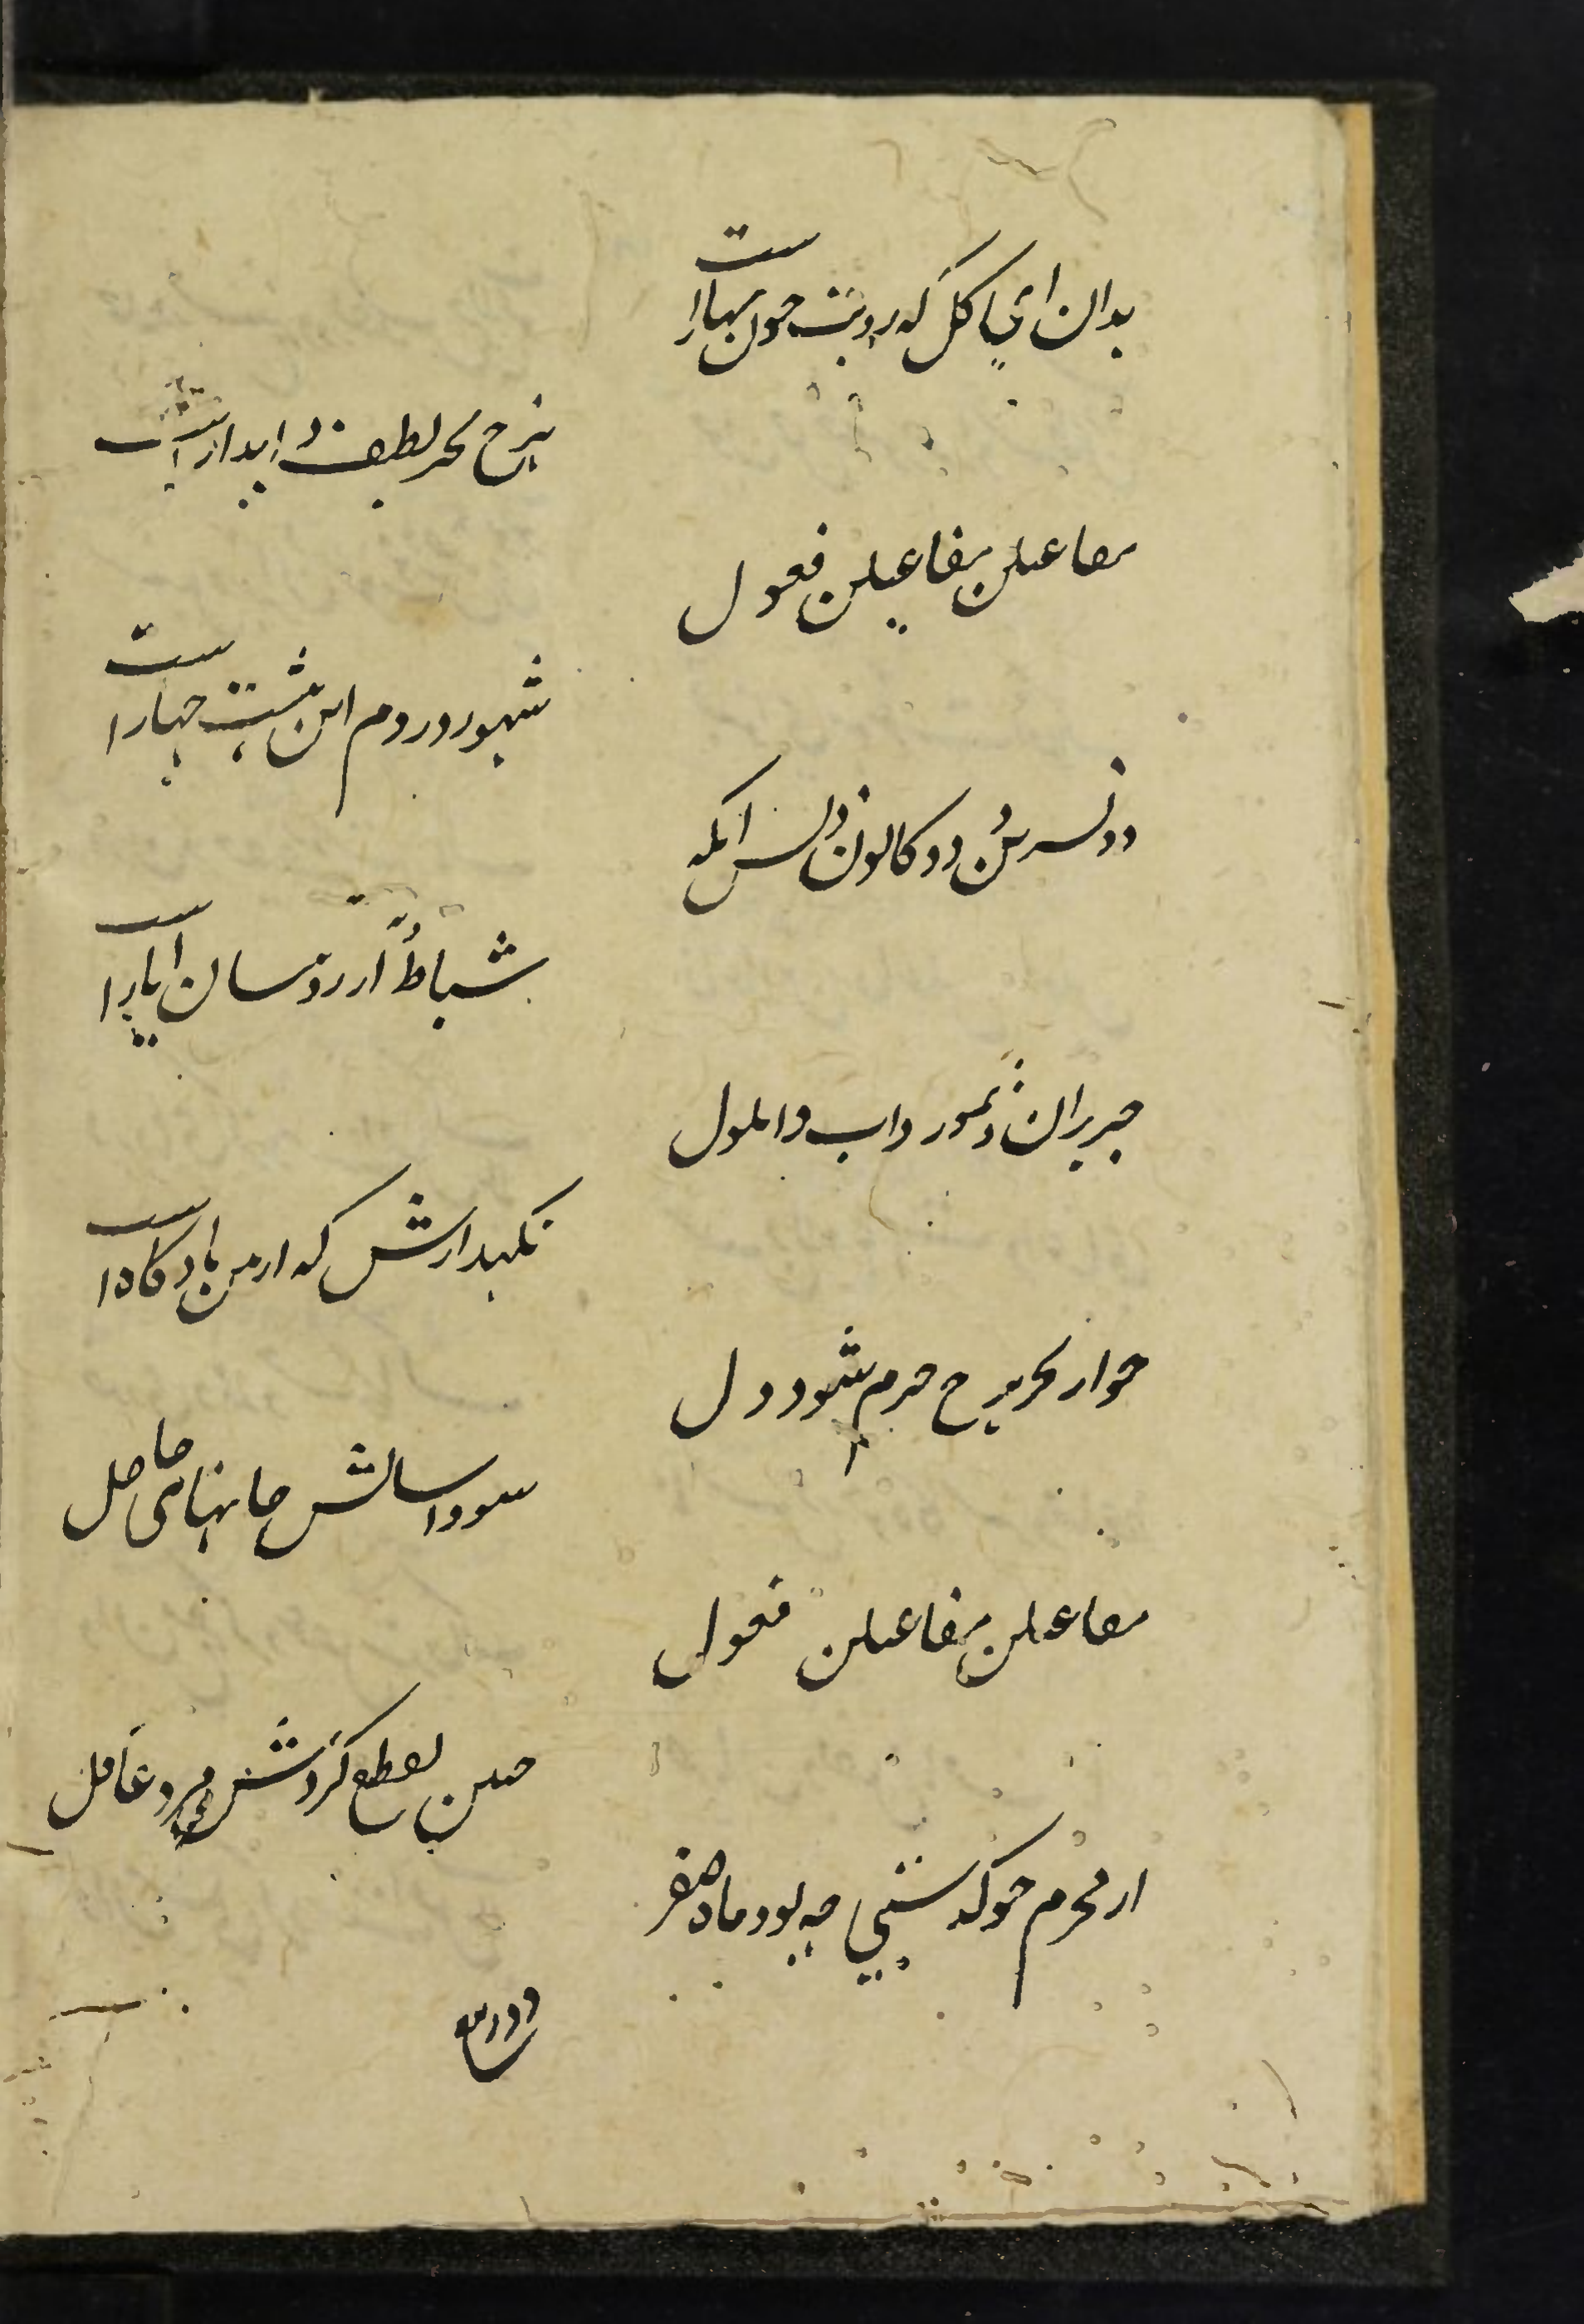 بدان ای گل که رویت چون بهارا ست
بزح بحر لطف و ابدار است
مفاعیلن مفاعیلن فعول
شهور روم این بیشت چهارا ست
دو تسرین دو کانون و پس انکه
شباط آذر و نیسان آیارا ست
حزیران و تموز و اب و ایلول
نکهدارش که از من یادکارا ست
چو از بحر هزج خرم شود دل
سودا سالش جانهای حاصل
مفاعیلن مفاعیلن فعول
چنین تقطیع کردش مرد عاقل
از محرم چو گذشتی چه بود ماه صفر
دو ربیع